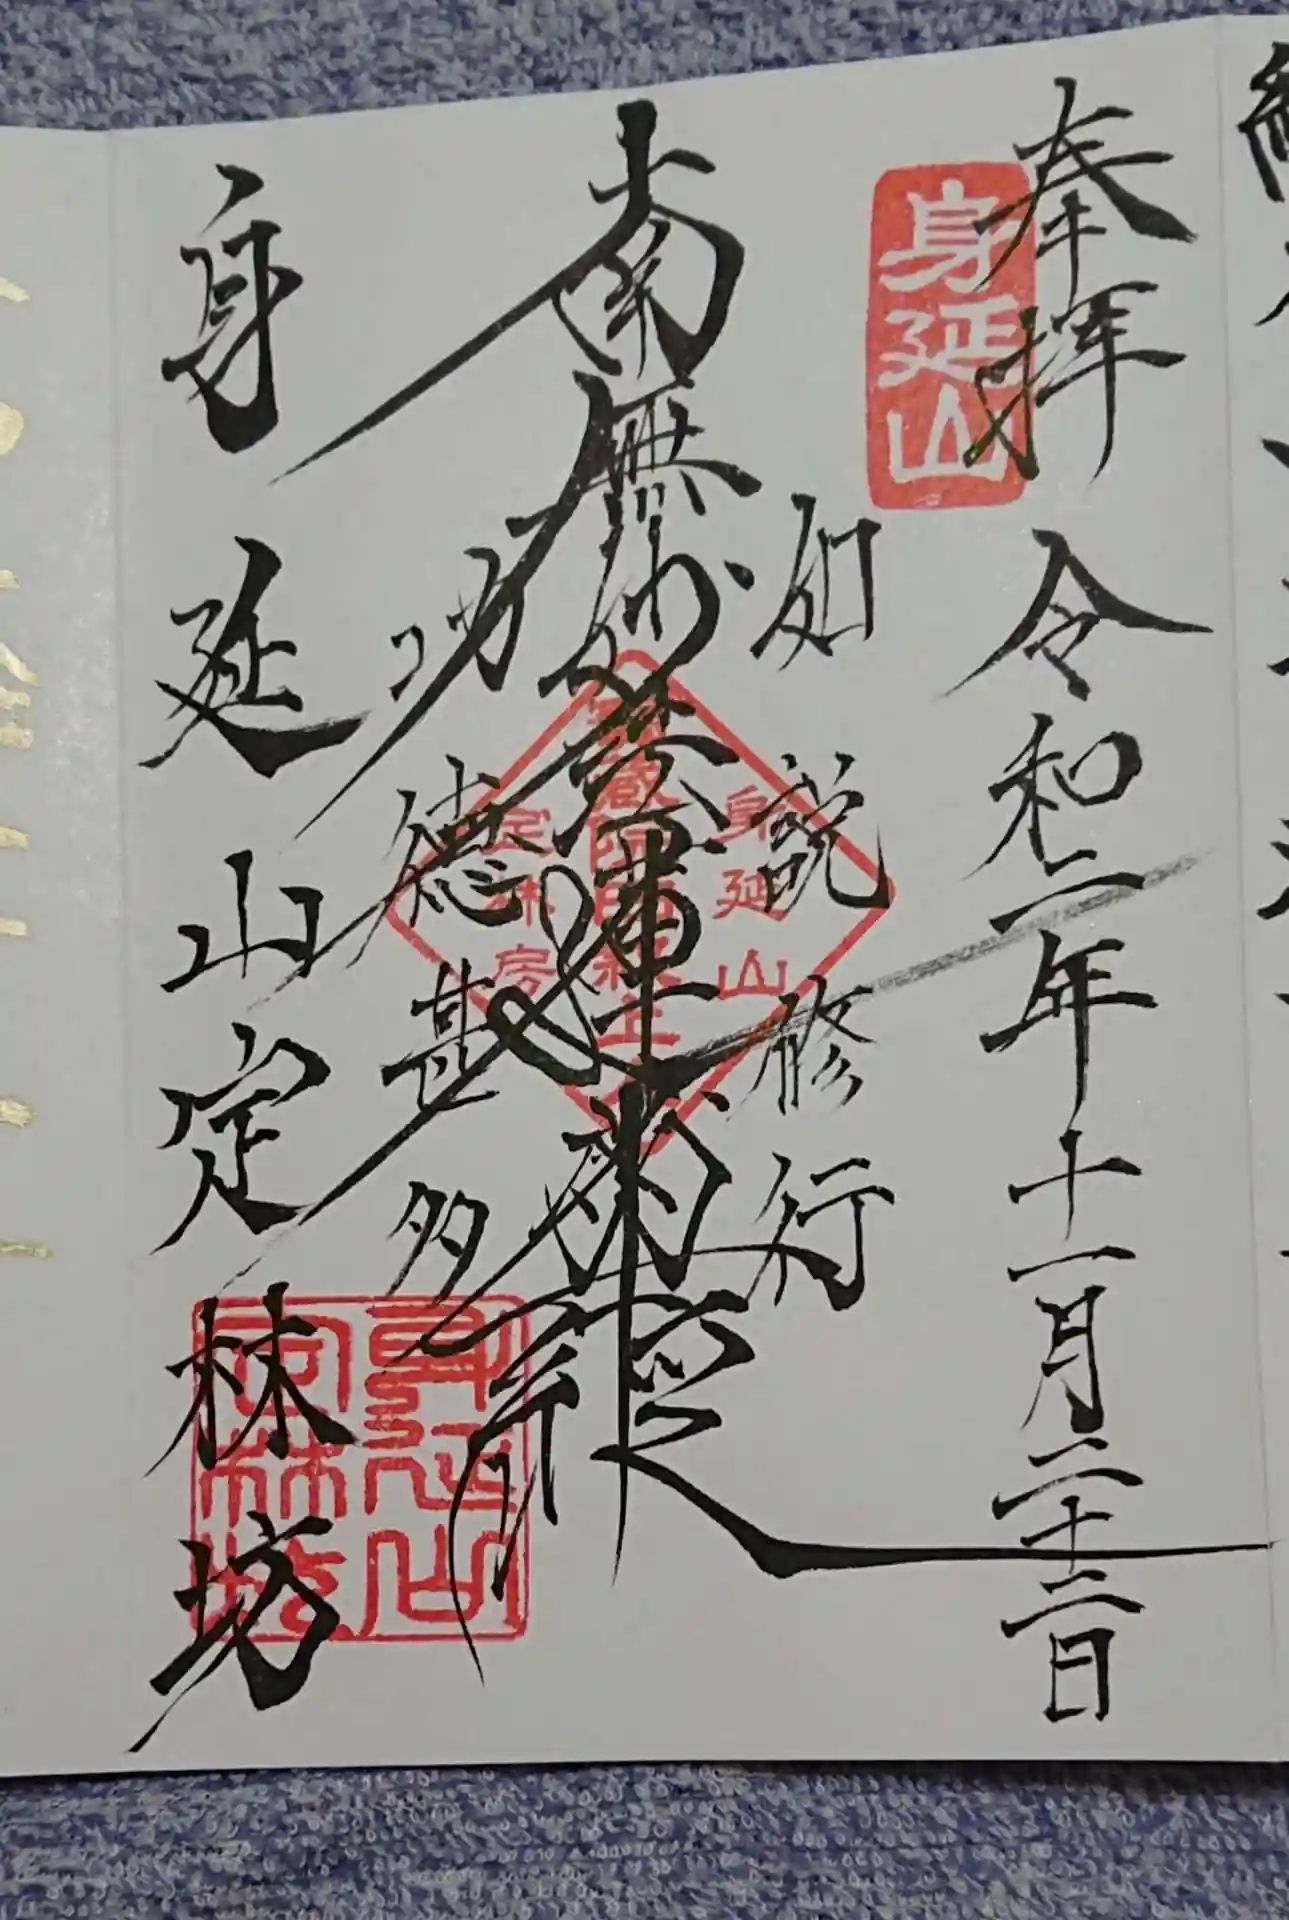 奉拝 令和二年十一月二十二日
身延山
如説修行
南無妙法蓮華経
功徳甚多
身延山
定林房
身延山定林坊
身延山
定林坊